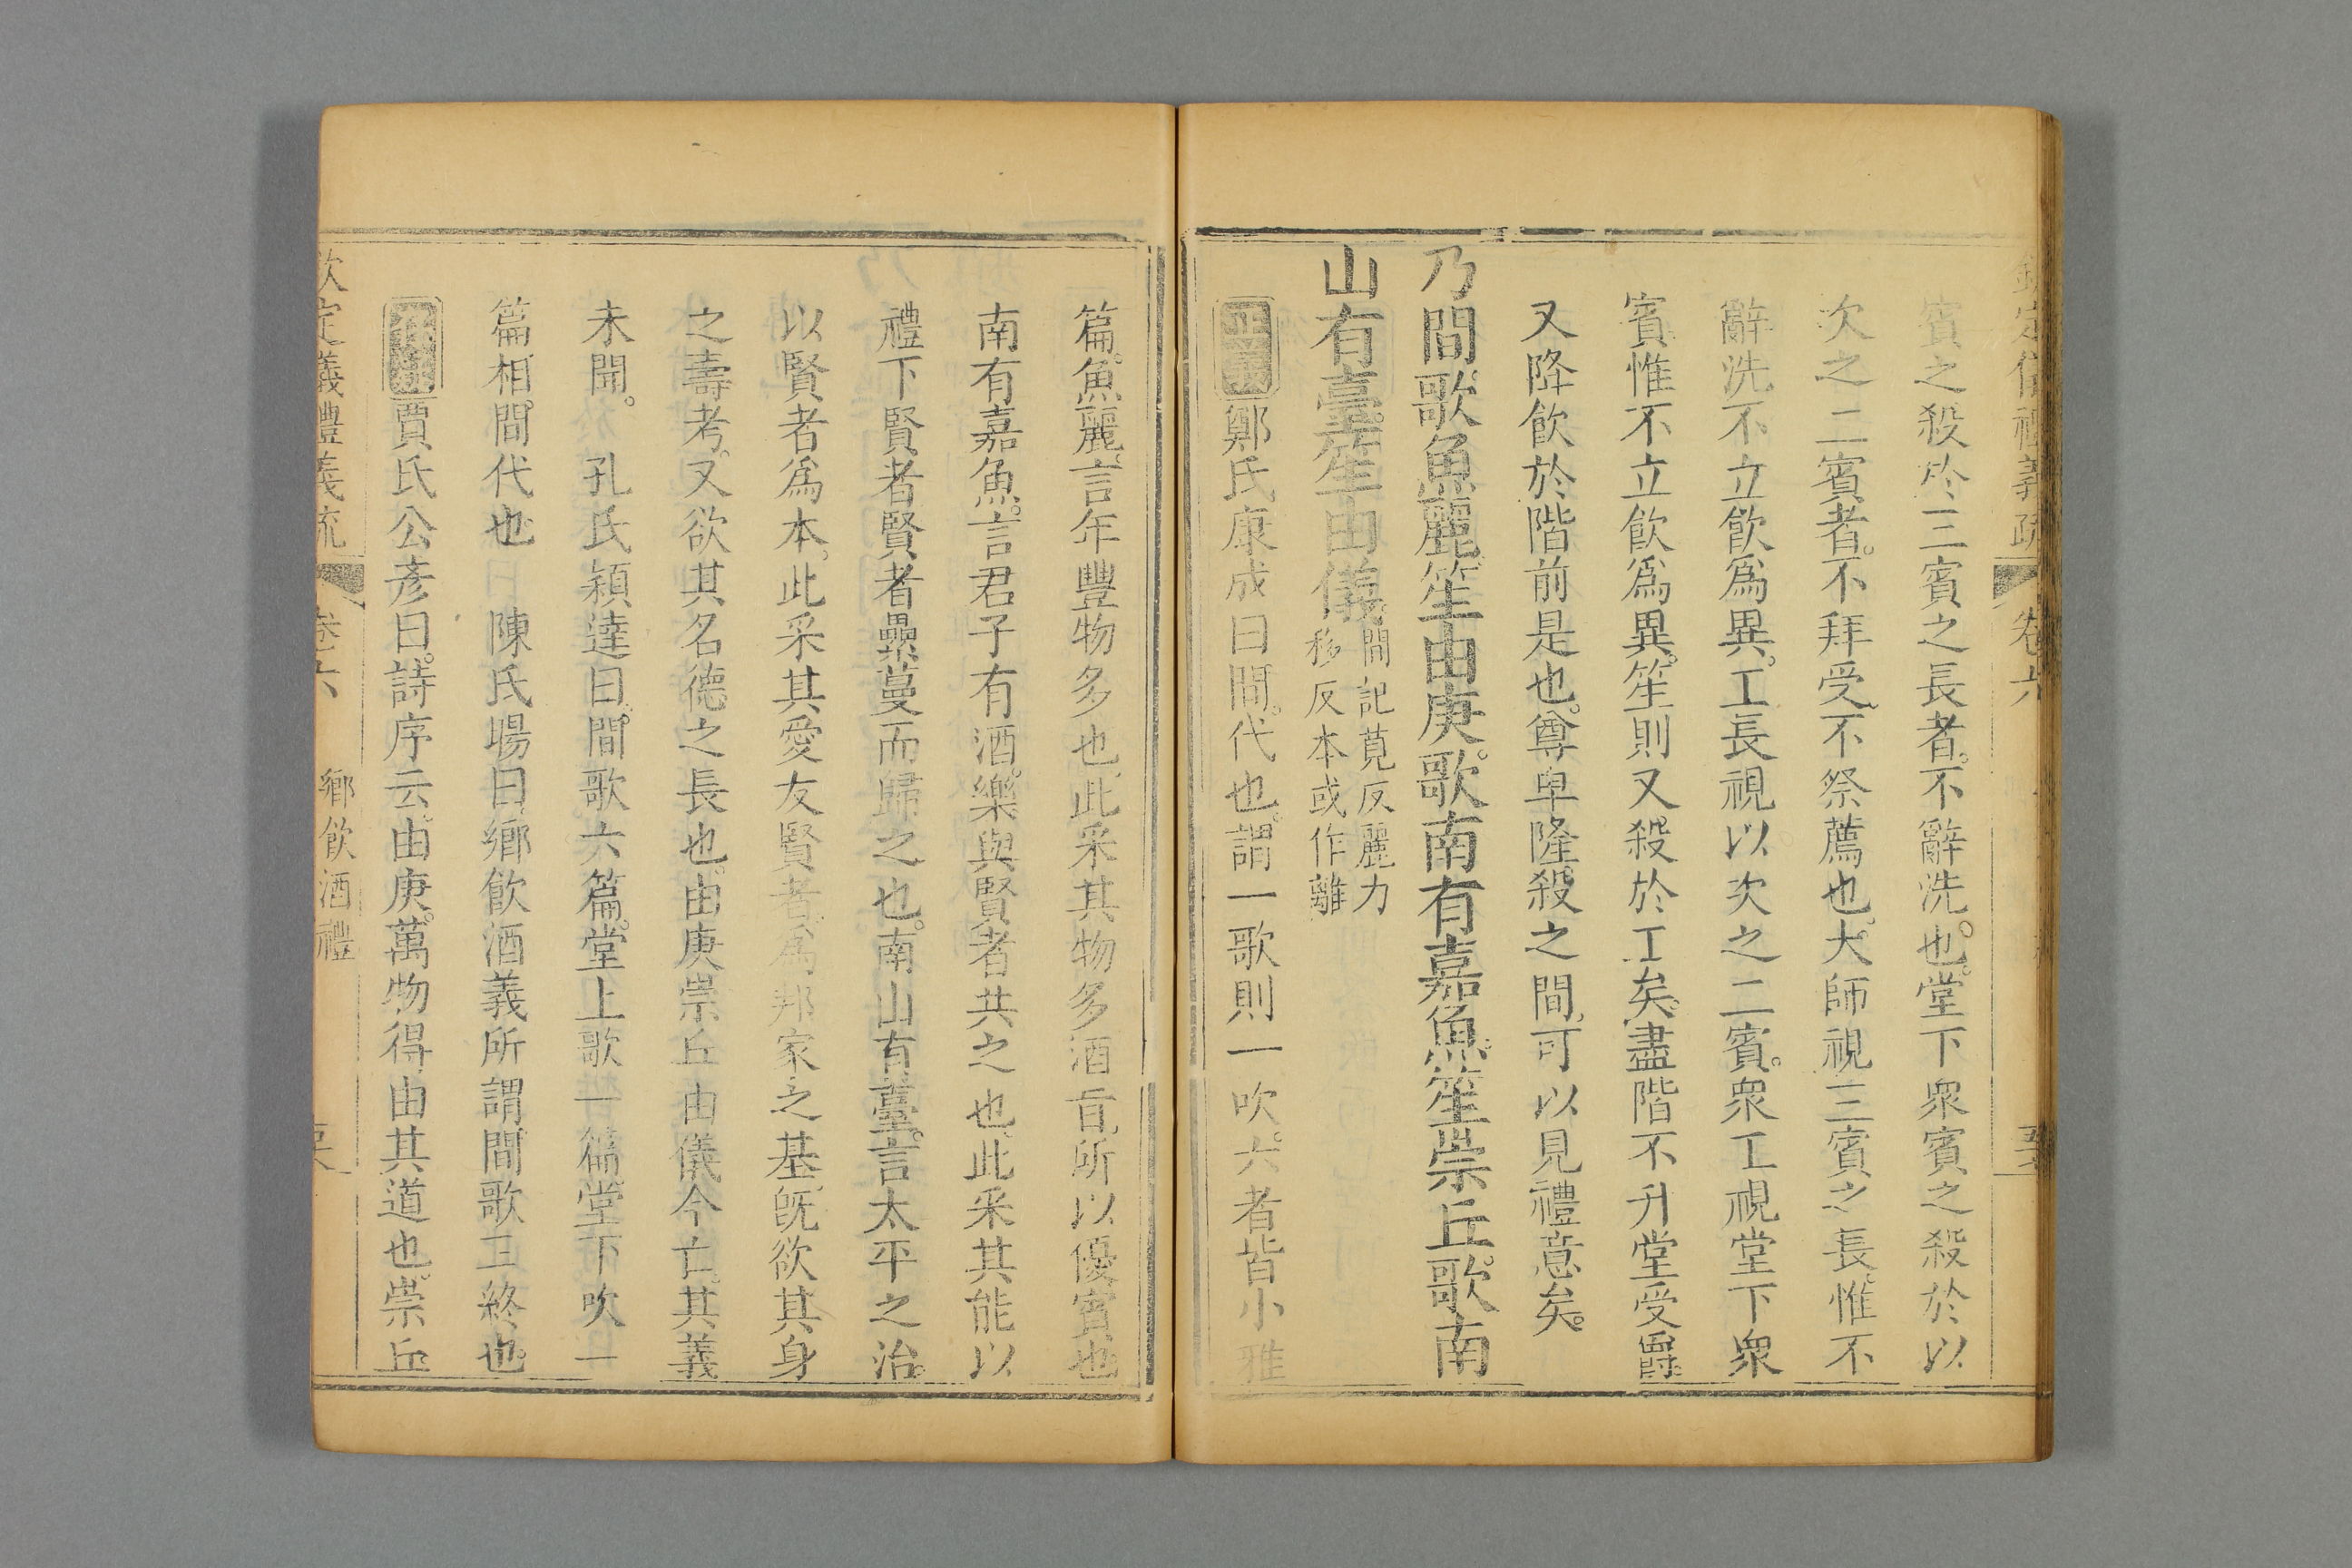 欽定儀禮義疏 卷六
賓之殺於三賓之長者。不辭洗。也。堂下衆賓之殺於以
次之二賓者。不拜受、不祭薦也。大師視三賓之長。惟不
辭洗不立飮爲異。工長視以次之二賓。衆工視堂下衆
賓惟不立飮爲異。笙則又殺於工矣。盡階不升堂受爵
又降飮於階前是也。尊卑隆殺之間、可以見禮意矣。
乃間歌魚麗。笙由庚。歌南有嘉魚。笙崇丘。歌南
山有臺。笙由儀。間記莧反麗力
移反本或作離
正義 鄭氏康成曰間。代也。謂一歌則一吹。六者皆小雅
篇。魚麗。言年豐物多也。此采其物多酒旨、所以優賓也
南有嘉魚。言君子有酒。樂與賢者共之也。此采其能以
禮下賢者賢者纍蔓而歸之也。南山有臺。言太平之治。
以賢者爲本。此采其愛友賢者、爲邦家之基。旣欲其身
之壽考。又欲其名德之長也。由庚崇丘由儀今亡。其義
未聞。 孔氏穎達曰。間歌六篇。堂上歌一篇。堂下吹一
篇相。間代也 陳氏暘曰鄉飮酒義所謂間歌三終也。
存疑 賈氏公彥曰。詩序云。由庚。萬物得由其道也。崇丘
欽定儀禮義疏 卷六 鄉飮酒禮